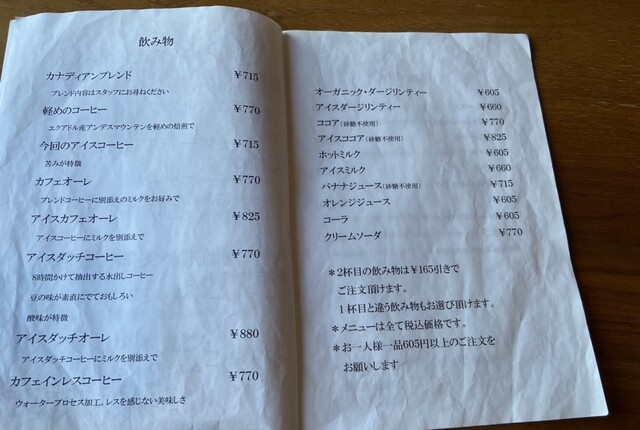 飲み物
カナディアンブレンド ￥715
ブレンド内容はスタッフにお尋ねください
軽めのコーヒー ￥770
エクアドル産アンデスマウンテンを軽めの焙煎で
今回のアイスコーヒー ￥715
苦みが特徴
カフェオーレ ￥770
ブレンドコーヒーに別添えのミルクをお好みで
アイスカフェオーレ ￥825
アイスコーヒーにミルクを別添えで
アイスダッチコーヒー ￥770
8時間かけて抽出する水出しコーヒー
豆の味が素直にでておもしろい
酸味が特徴
アイスダッチオーレ ￥880
アイスダッチコーヒーにミルクを別添えで
カフェインレスコーヒー ￥770
ウォータープロセス加工。レスを感じない美味しさ
オーガニック・ダージリンティー ￥605
アイスダージリンティー ￥660
ココア(砂糖不使用) ￥770
アイスココア(砂糖不使用) ￥825
ホットミルク ￥605
アイスミルク ￥660
バナナジュース(砂糖不使用) ￥715
オレンジジュース ￥605
コーラ ￥605
クリームソーダ ￥770
＊2杯目の飲み物は￥165引きで
ご注文頂けます。
1杯目と違う飲み物もお選び頂けます。
＊メニューは全て税込価格です。
＊お一人様一品605円以上のご注文を
お願いします